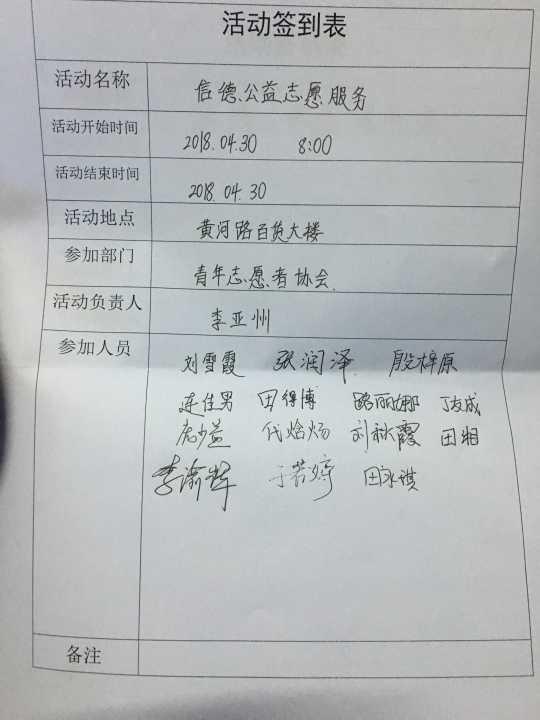 活动签到表
活动名称 信德公益志愿服务
活动开始时间 2018.04.30 8:00
活动结束时间 2018.04.30
活动地点 黄河路百货大楼
参加部门 青年志愿者协会
活动负责人 李亚州
参加人员
刘雪霞 张润泽 殷梓原
连佳男 田得博 路丽娜 丁友成
刘秋霞 田湘
于若婷 田冰淇
备注